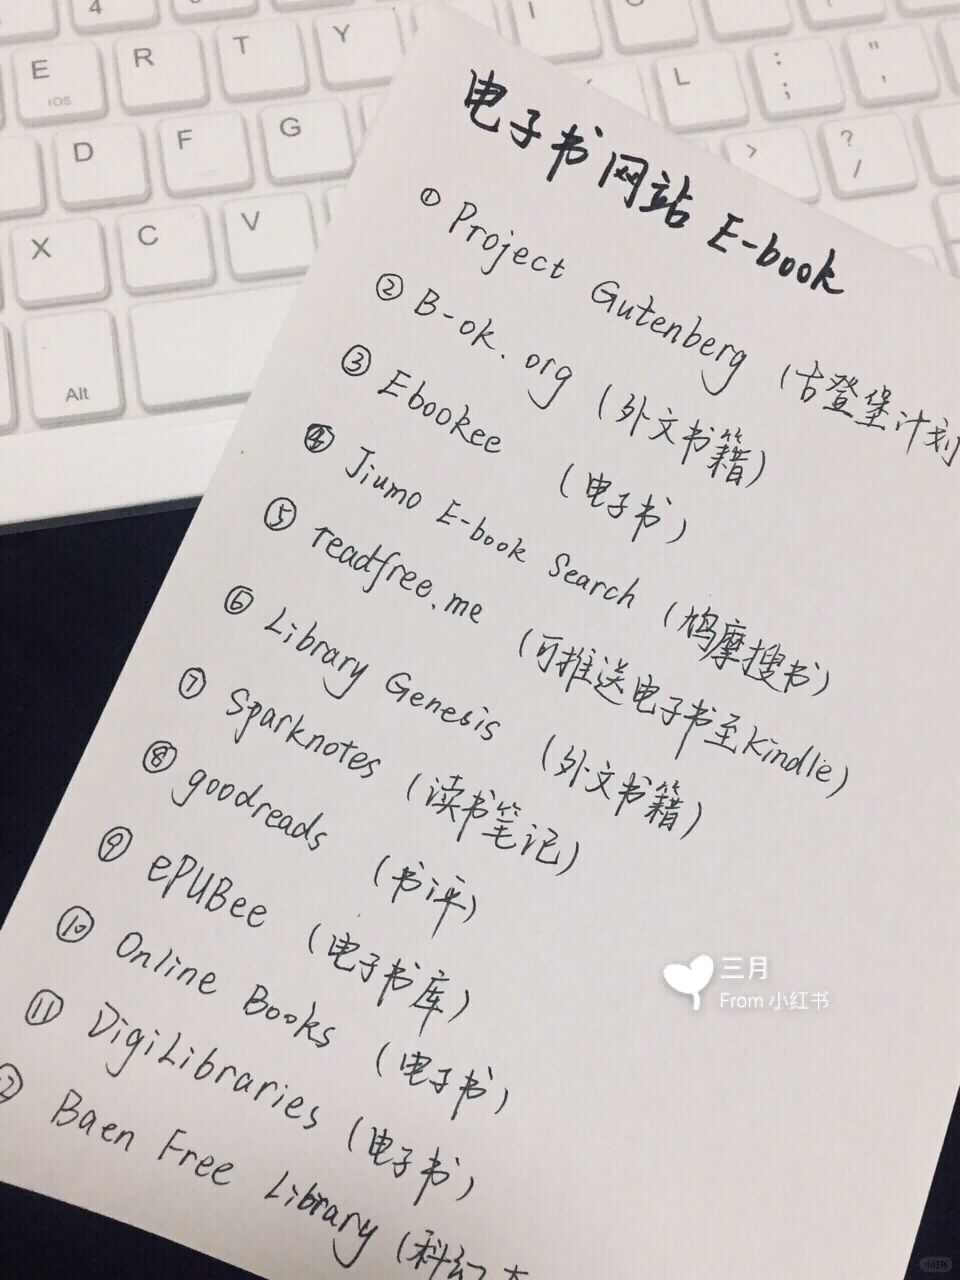 4
E
R
T
Y
I
O
iOS
D
F
G
L
:
;
"
,
X
C
V
>
?
/
Alt
电子书网站 E-book
① Project Gutenberg (古登堡计划
② B-ok.org (外文书籍)
③ Ebookee (电子书)
④ Jiumo E-book Search (鸠摩搜书)
⑤ readfree.me (可推送电子书至Kindle)
⑥ Library Genesis (外文书籍)
⑦ Sparknotes (读书笔记)
⑧ goodreads (书评)
⑨ ePUBee (电子书库)
⑩ Online Books (电子书)
⑪ DigiLibraries (电子书)
⑫ Baen Free Library (科幻
三月
From 小红书
小红书